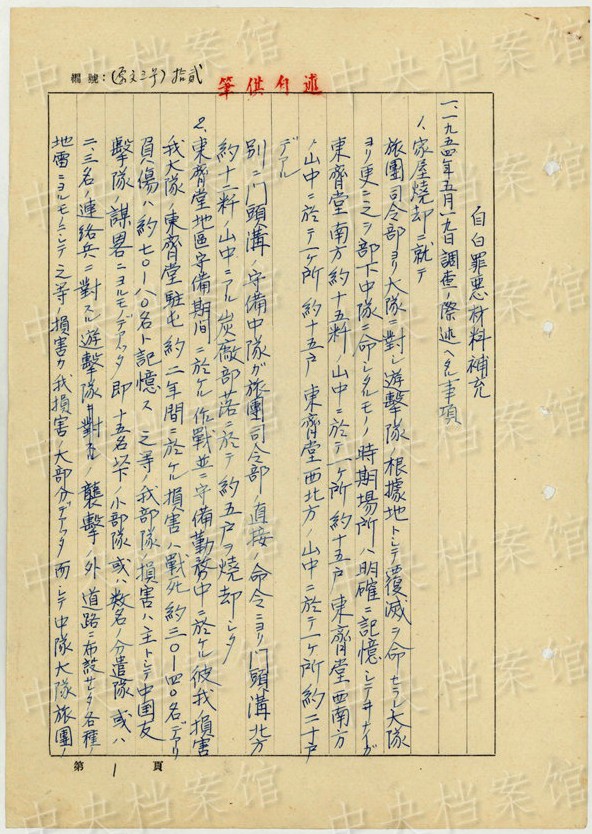 欄號：（原文三号）拾貳
筆供自述
自白罪惡材料補充
一、一九五四年五月一九日調査ノ際述ヘタル事項
1、家屋焼却ニ就テ
旅團司令部ヨリ大隊ニ對シ遊擊隊ノ根據地トシテ覆滅ヲ命セラレ大隊
ヨリ更ニ之ヲ部下中隊ニ命シタルモノノ時期場所ハ明確ニ記憶シテヰナイガ
東齊堂南方約十五粁ノ山中ニ於テ一ヶ所約十五戸東齊堂西南方
ノ山中ニ於テ一ヶ所約十五戸東齊堂西北方ノ山中ニ於テ一ヶ所約二十戸
デアル
別ニ門頭溝ノ守備中隊ガ旅團司令部ノ直接ノ命令ニヨリ門頭溝北方
約十二粁ノ山中ニアル炭廠部落ニ於テ約五戸ヲ焼却シタ
2、東齊堂地區守備期間ニ於ケル作戰並ニ守備勤務中ニ於ケル彼我ノ損害
我大隊ノ東齊堂駐屯約二年間ニ於ケル損害ハ戰死約三〇－四〇名デアリ
負傷ハ約七〇－八〇名ト記憶ス之等ノ我部隊ノ損害ハ主トシテ中国友
擊隊ノ謀畧ニヨルモノデアッタ即十五名以下ノ小部隊或ハ数名ノ分遣隊或ハ
二、三名ノ連絡兵ニ對スル遊擊隊ノ襲擊ノ外ノ道路ニ布設サレタ各種ノ
地雷ニヨルモノニシテ之等ノ損害カ我損害ノ大部分デアッタ而シテ中隊大隊旅團ノ
第1頁
中央档案馆